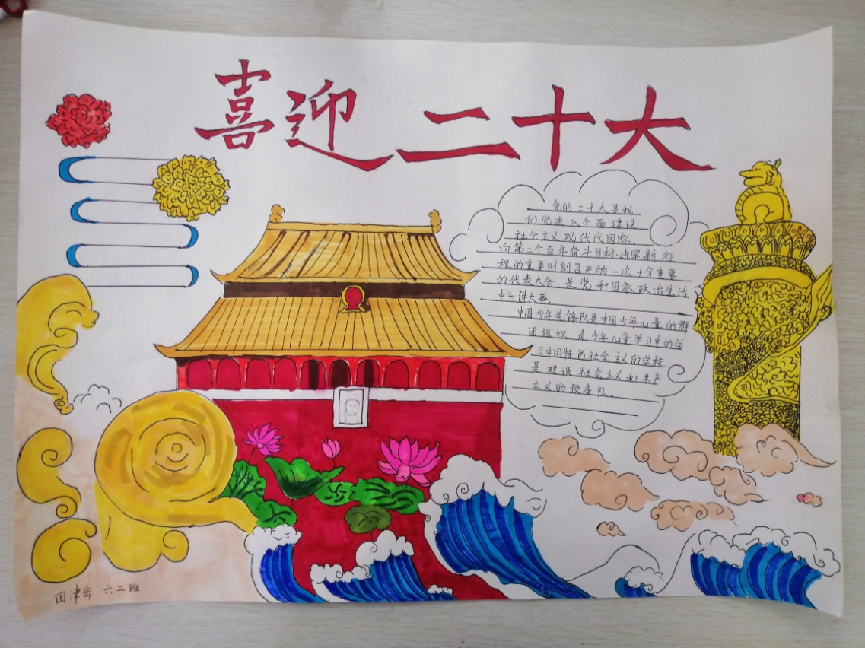 喜迎二十大
党的二十大是我
们党进入全面建设
社会主义现代化国家、
向第二个百年奋斗目标进军新征
程的重要时刻召开的一次十分重要
的代表大会,是党和国家政治生活
中一件大事。
中国少年先锋队是中国少年儿童的群
团组织,是少年儿童学习中国特色社会主义的学校
是建设社会主义和共产
主义的预备队。
六二班